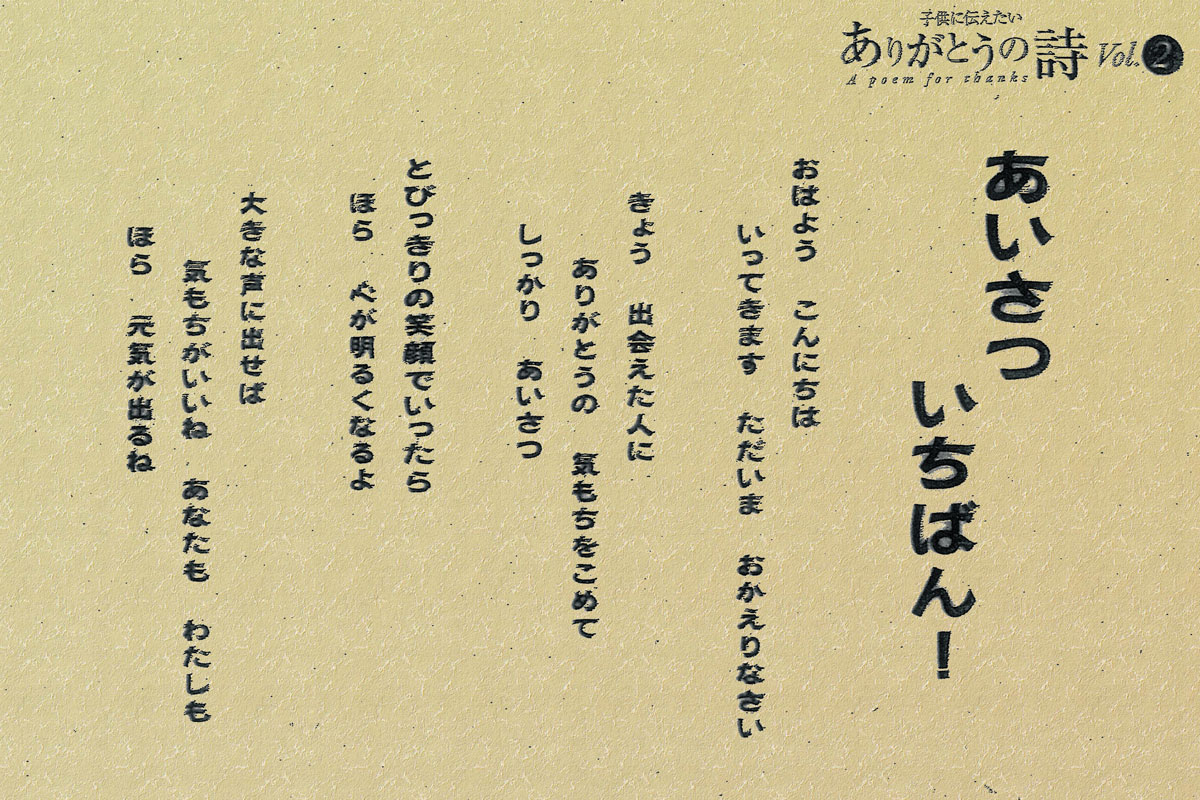 子供に伝えたい
ありがとうの詩 Vol.2
A poem for thanks
あいさつ
いちばん！
おはよう　こんにちは
いってきます　ただいま　おかえりなさい
きょう　出会えた人に
ありがとうの　気もちをこめて
しっかり　あいさつ
とびっきりの笑顔でいったら
ほら　心が明るくなるよ
大きな声に出せば
気もちがいいね　あなたも　わたしも
ほら　元気が出るね